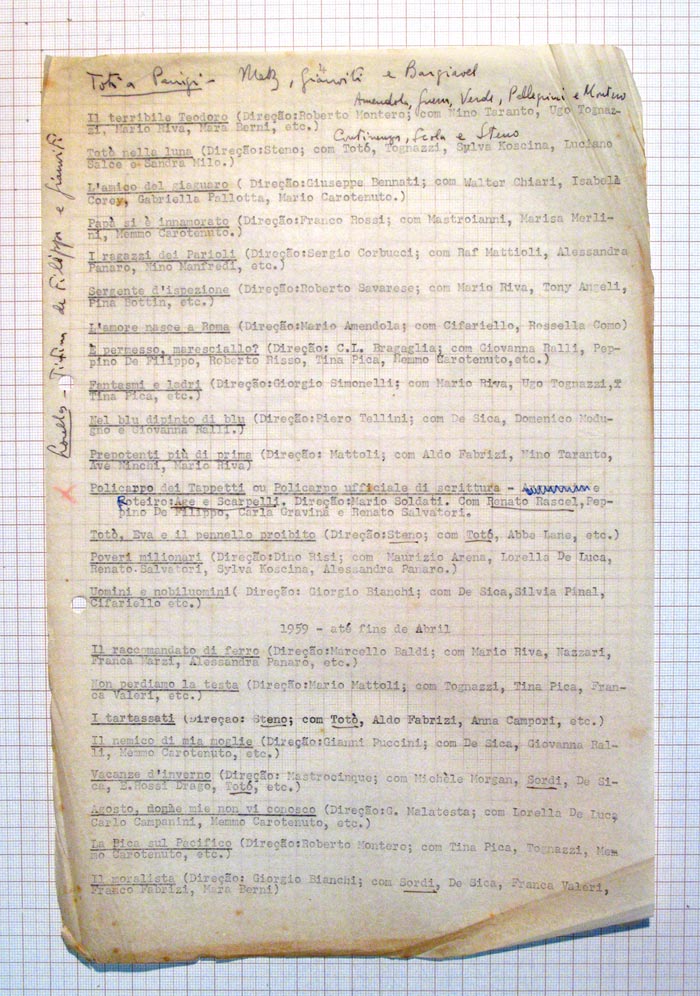 Totò a Parigi - Metz, Gianviti e Bargiavel
Amendola, Guerra, Verde, Pellegrini e Montero
Il terribile Teodoro (Direção:Roberto Montero; com Nino Taranto, Ugo Tognaz-
zi, Mario Riva, Mara Berni, etc.)
Continenza, Scola e Steno
Totò nella luna (Direção:Steno; com Totó, Tognazzi, Sylva Koscina, Luciano
Salce e Sandra Milo.)
L'amico del giaguaro ( Direção:Giuseppe Bennati; com Walter Chiari, Isabela
Corey, Gabriella Pallotta, Mario Carotenuto.)
Papà si è innamorato (Direção:Franco Rossi; com Mastroianni, Marisa Merli-
ni, Memmo Carotenuto.)
I ragazzi dei Parioli (Direção:Sergio Corbucci; com Raf Mattioli, Alessandra
Panaro, Nino Manfredi, etc.)
Sergente d'ispezione (Direção:Roberto Savarese; com Mario Riva, Tony Angeli,
Pina Bottin, etc.)
L'amore nasce a Roma (Direção:Mario Amendola; com Cifariello, Rossella Como)
È permesso, maresciallo? (Direção: C.L. Bragaglia; com Giovanna Ralli, Pep-
pino De Filippo, Roberto Risso, Tina Pica, Memmo Carotenuto,etc.)
Lorella - Titina de Filippo e Gianviti
Fantasmi e ladri (Direção:Giorgio Simonelli; com Mario Riva, Ugo Tognazzi,
Tina Pica, etc.)
Nel blu dipinto di blu (Direção:Piero Tellini; com De Sica, Domenico Modu-
gno e Giovanna Ralli.)
Prepotenti più di prima (Direção: Mattoli; com Aldo Fabrizi, Nino Taranto,
Ave Ninchi, Mario Riva)
Policarpo dei Tappetti ou Policarpo ufficiale di scrittura - e
Roteiro:Age e Scarpelli. Direção:Mario Soldati. Com Renato Rascel,Pep-
pino De Filippo, Carla Gravina e Renato Salvatori.
Totò, Eva e il pennello proibito (Direção:Steno; com Totó, Abbe Lane, etc.)
Poveri milionari (Direção:Dino Risi; com Maurizio Arena, Lorella De Luca,
Renato Salvatori, Sylva Koscina, Alessandra Panaro.)
Uomini e nobiluomini( Direção: Giorgio Bianchi; com De Sica,Silvia Pinal,
Cifariello etc.)
1959 - até fins de Abril
Il raccomandato di ferro (Direção:Marcello Baldi; com Mario Riva, Nazzari,
Franca Marzi, Alessandra Panaro, etc.)
Non perdiamo la testa (Direção:Mario Mattoli; com Tognazzi, Tina Pica, Fran-
ca Valeri, etc.)
I tartassati (Direçao: Steno; com Totò, Aldo Fabrizi, Anna Campori, etc.)
Il nemico di mia moglie (Direção:Gianni Puccini; com De Sica, Giovanna Ral-
li, Memmo Carotenuto, etc.)
Vacanze d'inverno (Direção: Mastrocinque; com Michèle Morgan, Sordi, De Si-
ca, E.Rossi Drago, Totó, etc.)
Agosto, doghe mie non vi conosco (Direção:G. Malatesta; com Lorella De Luca
Carlo Campanini, Memmo Carotenuto, etc.)
La Pica sul Pacifico (Direção:Roberto Montero; com Tina Pica, Tognazzi, Mem
mo Carotenuto, etc.)
Il moralista (Direção: Giorgio Bianchi; com Sordi, De Sica, Franca Valeri,
Franco Fabrizi, Mara Berni)